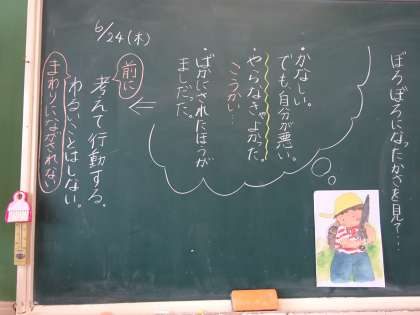 ぼろぼろになったかさを見て?…
・かなしい。
でも、自分が悪い。
・やらなきゃよかった。
こうかい…
・ばかにされたほうが
ましだった。
前に
考えて行動する。
わるいことはしない。
まわりにながされない
6/24(木)